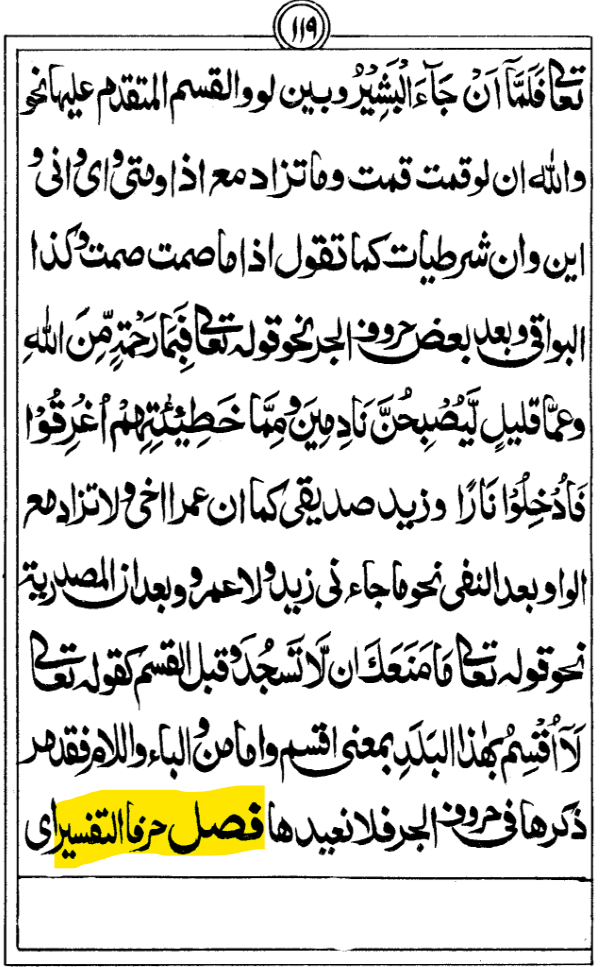 ١١٩
تعالى فَلَمَّآ اَنْ جَآءَ الْبَشِيْرُ وبين لو والقسم المتقدم عليها نحو
والله ان لو قمت قمت وما تزاد مع اذا ومتى واى وانى و
اين وان شرطيات كما تقول اذا ما صمت صمت وكذا
البواقى وبعد بعض حروف الجر نحو قوله تعالى فَبِمَا رَحْمَةٍ مِّنَ اللهِ
وعمَّا قليلٍ لَّيُصْبِحُنَّ نَادِمِيْنَ ومِمَّا خَطِيْئٰتِهِمْ اُغْرِقُوْا
فَاُدْخِلُوْا نَارًا وزيد صديقى كما ان عمرا اخى ولا تزاد مع
الواو بعد النفى نحو ما جاءنى زيد ولا عمرو وبعد ان المصدرية
نحو قوله تعالى مَا مَنَعَكَ ان لَّا تَسْجُدَ وقبل القسم كقوله تعالى
لَآ اُقْسِمُ بِهٰذَا البَلَدِ بمعنى اقسم واما من والباء واللام فقد مر
ذكرها فى حروف الجر فلا نعيدها فصل حرفا التفسير اى